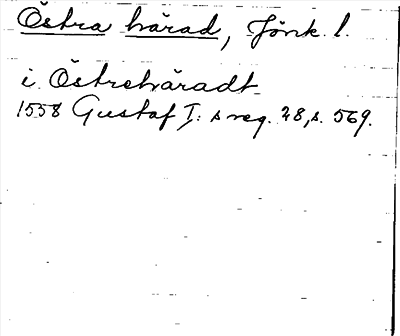 Östra härad, Jönk. l.
i Östrehäradt
1558 Gustaf I: s reg. 28, s. 569.